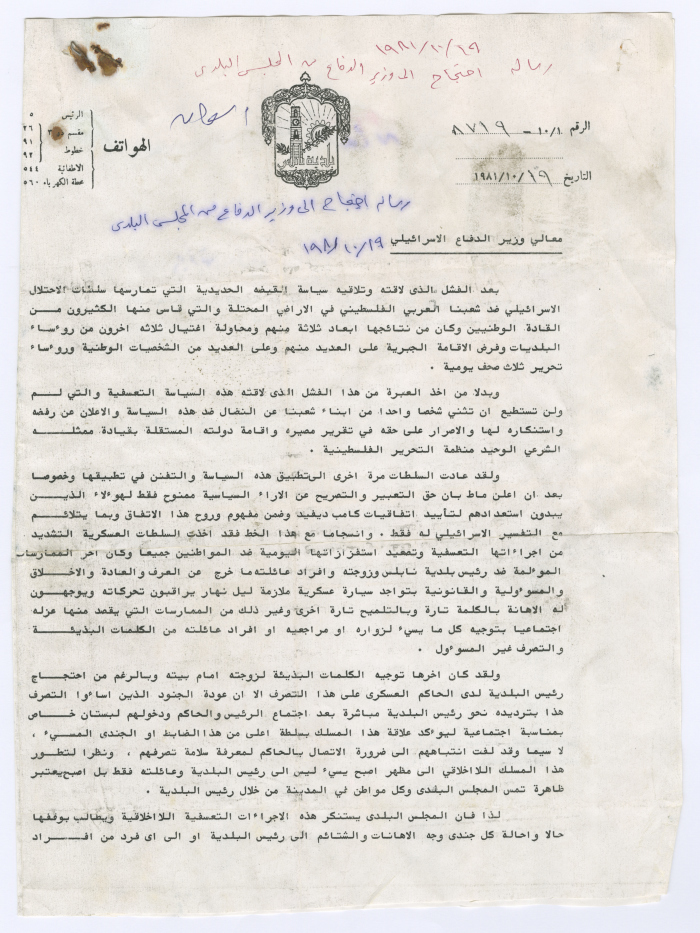 ١٩/١٠/١٩٨١
رساله احتجاج الى وزير الدفاع من المجلس البلدي
الرقم ١٠/١ – ٨٧١٩
التاريخ ١٩/١٠/١٩٨١
الهواتف
الرئيس ٥
مقسم
خطوط
الاطفائية ٥٤٤
محطة الكهرباء ٥٦٠
رساله احتجاج الى وزير الدفاع من المجلس البلدي
١٩/١٠/١٩٨١
معالي وزير الدفاع الاسرائيلي
بعد الفشل الذى لاقته وتلاقيه سياسة القبضه الحديدية التي تمارسها سلطات الاحتلال
الاسرائيلي ضد شعبنا العربي الفلسطيني في الاراضي المحتلة والتي قاسى منها الكثيرون من
القادة الوطنيين وكان من نتائجها ابعاد ثلاثة منهم ومحاولة اغتيال ثلاثه اخرون من روءساء
البلديات وفرض الاقامة الجبرية على العديد منهم وعلى العديد من الشخصيات الوطنية وروءساء
تحرير ثلاث صحف يومية .
وبدلا من اخذ العبرة من هذا الفشل الذى لاقته هذه السياسة التعسفية والتي لم
ولن تستطيع ان تثني شخصا واحدا من ابناء شعبنا عن النضال ضد هذه السياسة والاعلان عن رفضه
واستنكاره لها والاصرار على حقه في تقرير مصيره واقامة دولته المستقلة بقيادة ممثله
الشرعي الوحيد منظمة التحرير الفلسطينية .
ولقد عادت السلطات مرة اخرى الىتطبيق هذه السياسة والتفنن في تطبيقها وخصوصا
بعد ان اعلن ماط بان حق التعبير والتصريح عن الاراء السياسية ممنوح فقط لهوءلاء الذين
يبدون استعدادهم لتأييد اتفاقيات كامب ديفيد وضمن مفهوم وروح هذا الاتفاق وبما يتلائم
مع التفسير الاسرائيلي له فقط . وانسجاما مع هذا الخط فقد اخذت السلطات العسكرية التشديد
من اجراءاتها التعسفية وتصعيد استفزازاتها اليومية ضد المواطنين جميعا وكان اخر الممارسات
الموءلمة ضد رئيس بلدية نابلس وزوجته وافراد عائلته ما خرج عن العرف والعادة والاخلاق
والمسوءولية والقانونية بتواجد سيارة عسكرية ملازمة ليل نهار يراقبون تحركاته ويوجهون
له الاهانة بالكلمة تارة وبالتلميح تارة اخرى وغير ذلك من الممارسات التي يقصد منها عزله
اجتماعيا بتوجيه كل ما يسيء لزواره او مراجعيه او افراد عائلته من الكلمات البذيئة
والتصرف غير المسوءول .
ولقد كان اخرها توجيه الكلمات البذيئة لزوجته امام بيته وبالرغم من احتجاج
رئيس البلدية لدى الحاكم العسكرى على هذا التصرف الا ان عودة الجنود الذين اساءوا التصرف
هذا بترديده نحو رئيس البلدية مباشرة بعد اجتماع الرئيس والحاكم ودخولهم لبستان خاص
بمناسبة اجتماعية ليوءكد علاقة هذا المسلك بسلطة اعلى من هذا الضابط او الجندى المسيء ،
لا سيما وقد لفت انتباههم الى ضرورة الاتصال بالحاكم لمعرفة سلامة تصرفهم ، ونظرا لتطور
هذا المسلك اللااخلاقي الى مظهر اصبح يسيء ليس الى رئيس البلدية وعائلته فقط بل اصبح يعتبر
ظاهرة تمس المجلس البلدى وكل مواطن في المدينة من خلال رئيس البلدية .
لذا فان المجلس البلدى يستنكر هذه الاجراءات التعسفية اللااخلاقية ويطالب بوقفها
حالا واحالة كل جندى وجه الاهانات والشتائم الى رئيس البلدية او الى اى فرد من افراد